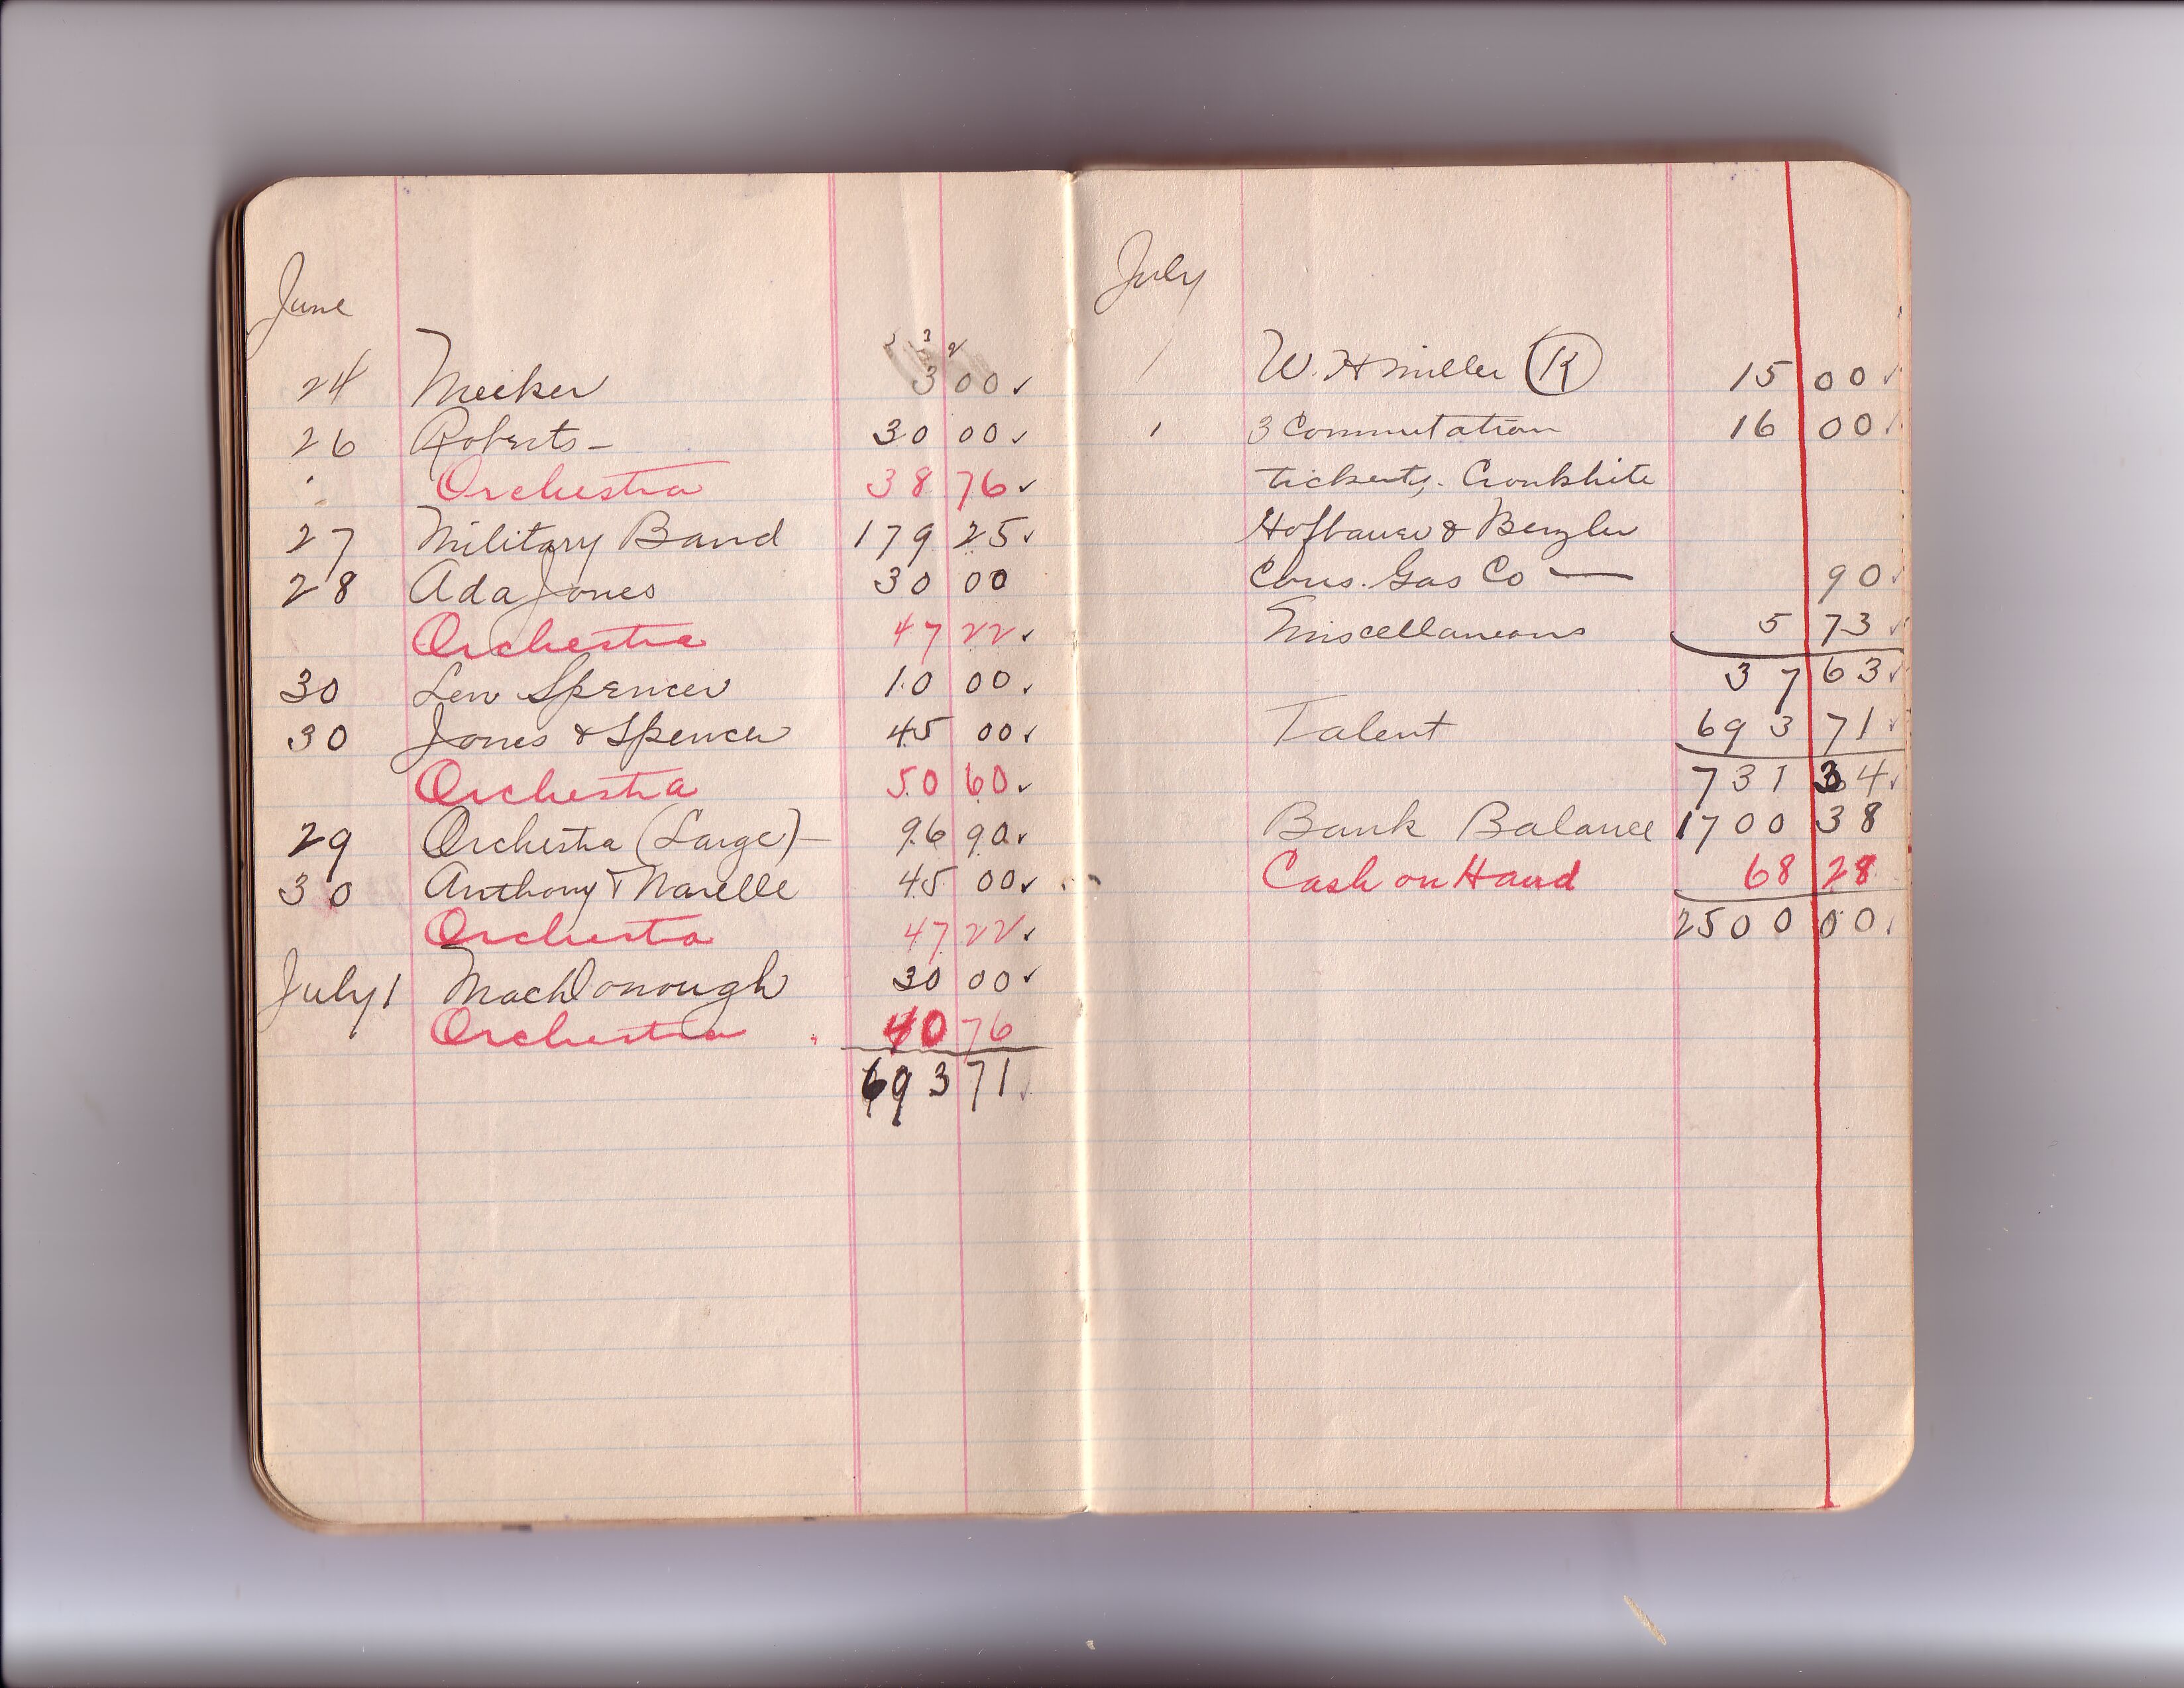 June
24 Meeker 3 00 ✓
26 Roberts - 30 00 ✓
Orchestra 38 76 ✓
27 Military Band 179 25 ✓
28 Ada Jones 30 00
Orchestra 47 22 ✓
30 Len Spencer 10 00 ✓
30 Jones & Spencer 45 00 ✓
Orchestra 50 60 ✓
29 Orchestra (Large) - 96 90 ✓
30 Anthony & 45 00 ✓
Orchestra 47 22 ✓
July 1 MacDonough 30 00 ✓
Orchestra 40 76
693 71 ✓
July
1 W. H Miller (R) 15 00 ✓
1 3 Commutation 16 00 ✓
tickets, Cronkhite
Hofbauer & Benzler
Cons. Gas Co — 90 ✓
Miscellaneous 5 73 ✓
37 63 ✓
Talent 693 71 ✓
731 34 ✓
Bank Balance 1700 38
Cash on Hand 68 28
2500 00 ✓